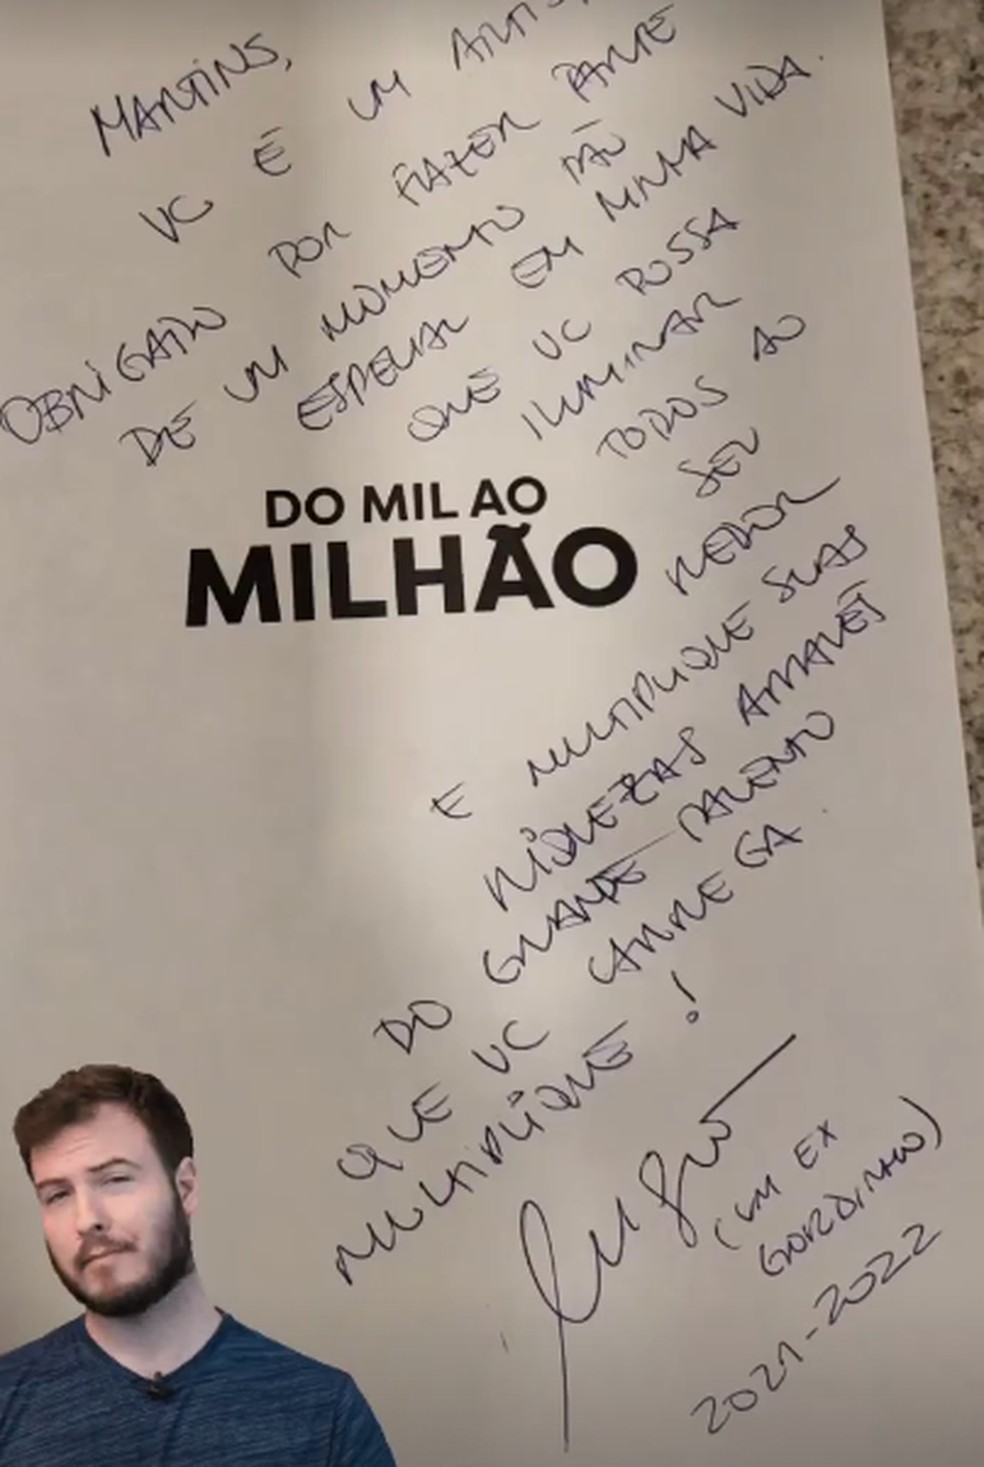 MARTINS,
VC É UM
OBRIGADO POR FAZER PARTE
DE UM MOMENTO TÃO
ESPECIAL EM MINHA VIDA.
QUE VC POSSA
ILUMINAR
TODOS AO
SEU
REDOR
DO MIL AO
MILHÃO
E MULTIPLIQUE SUAS
RIQUEZAS ATRAVÉS
DO GRANDE TALENTO
QUE VC CARREGA.
MULTIPLIQUE!
(UM EX
GORDINHO)
2021-2022